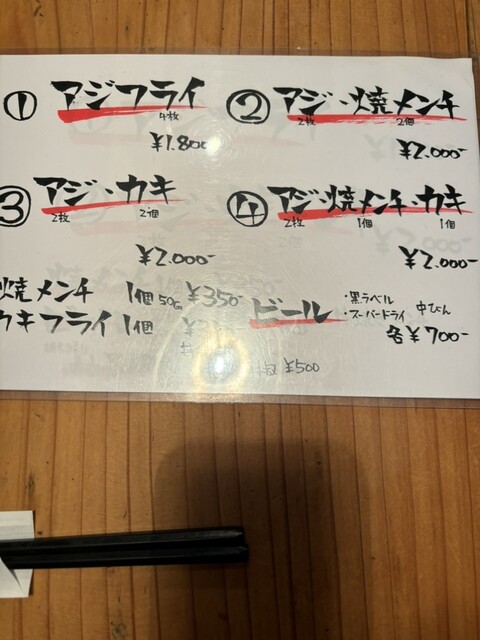 ① アジフライ
4枚
¥1.800
② アジ・焼メンチ
2枚 2個
¥2.000-
③ アジ・カキ
2枚 2個
¥2.000-
④ アジ・焼メンチ・カキ
2枚 1個 1個
¥2.000-
焼メンチ 1個 50G ¥350-
カキフライ 1個
ビール
・黒ラベル
・スーパードライ 中びん
各¥700-
¥500